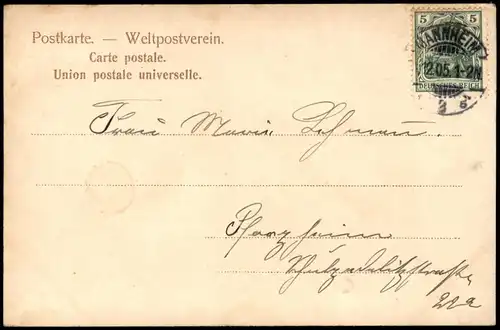 Postkarte. — Weltpostverein.
Carte postale.
Union postale universelle.
5 5
MANNHEIM
12.05.1-2N
DEUTSCHES REICH
Frau Marie Lehmann.
Pforzheim
Schulzedelitzstrasse
22a